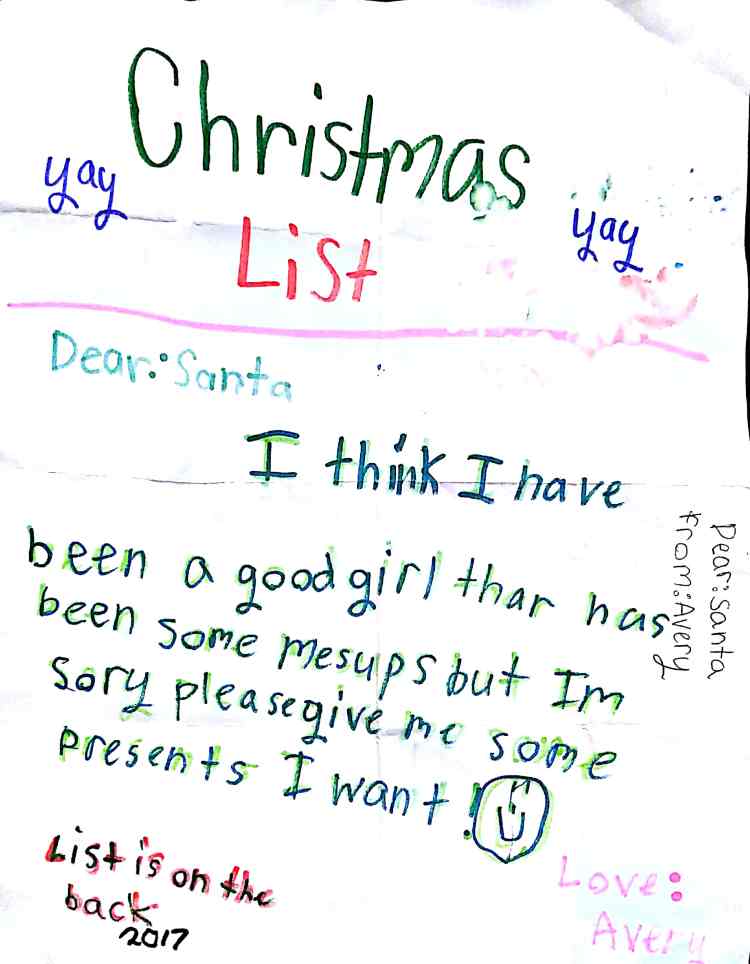 Christmas
yay
yay
List
Dear:Santa
I think I have
been a good girl thar has
been some mesups but Im
sory please give me some
presents I want!
Dear:Santa
From:Avery
List is on the
back
2017
Love:
Avery